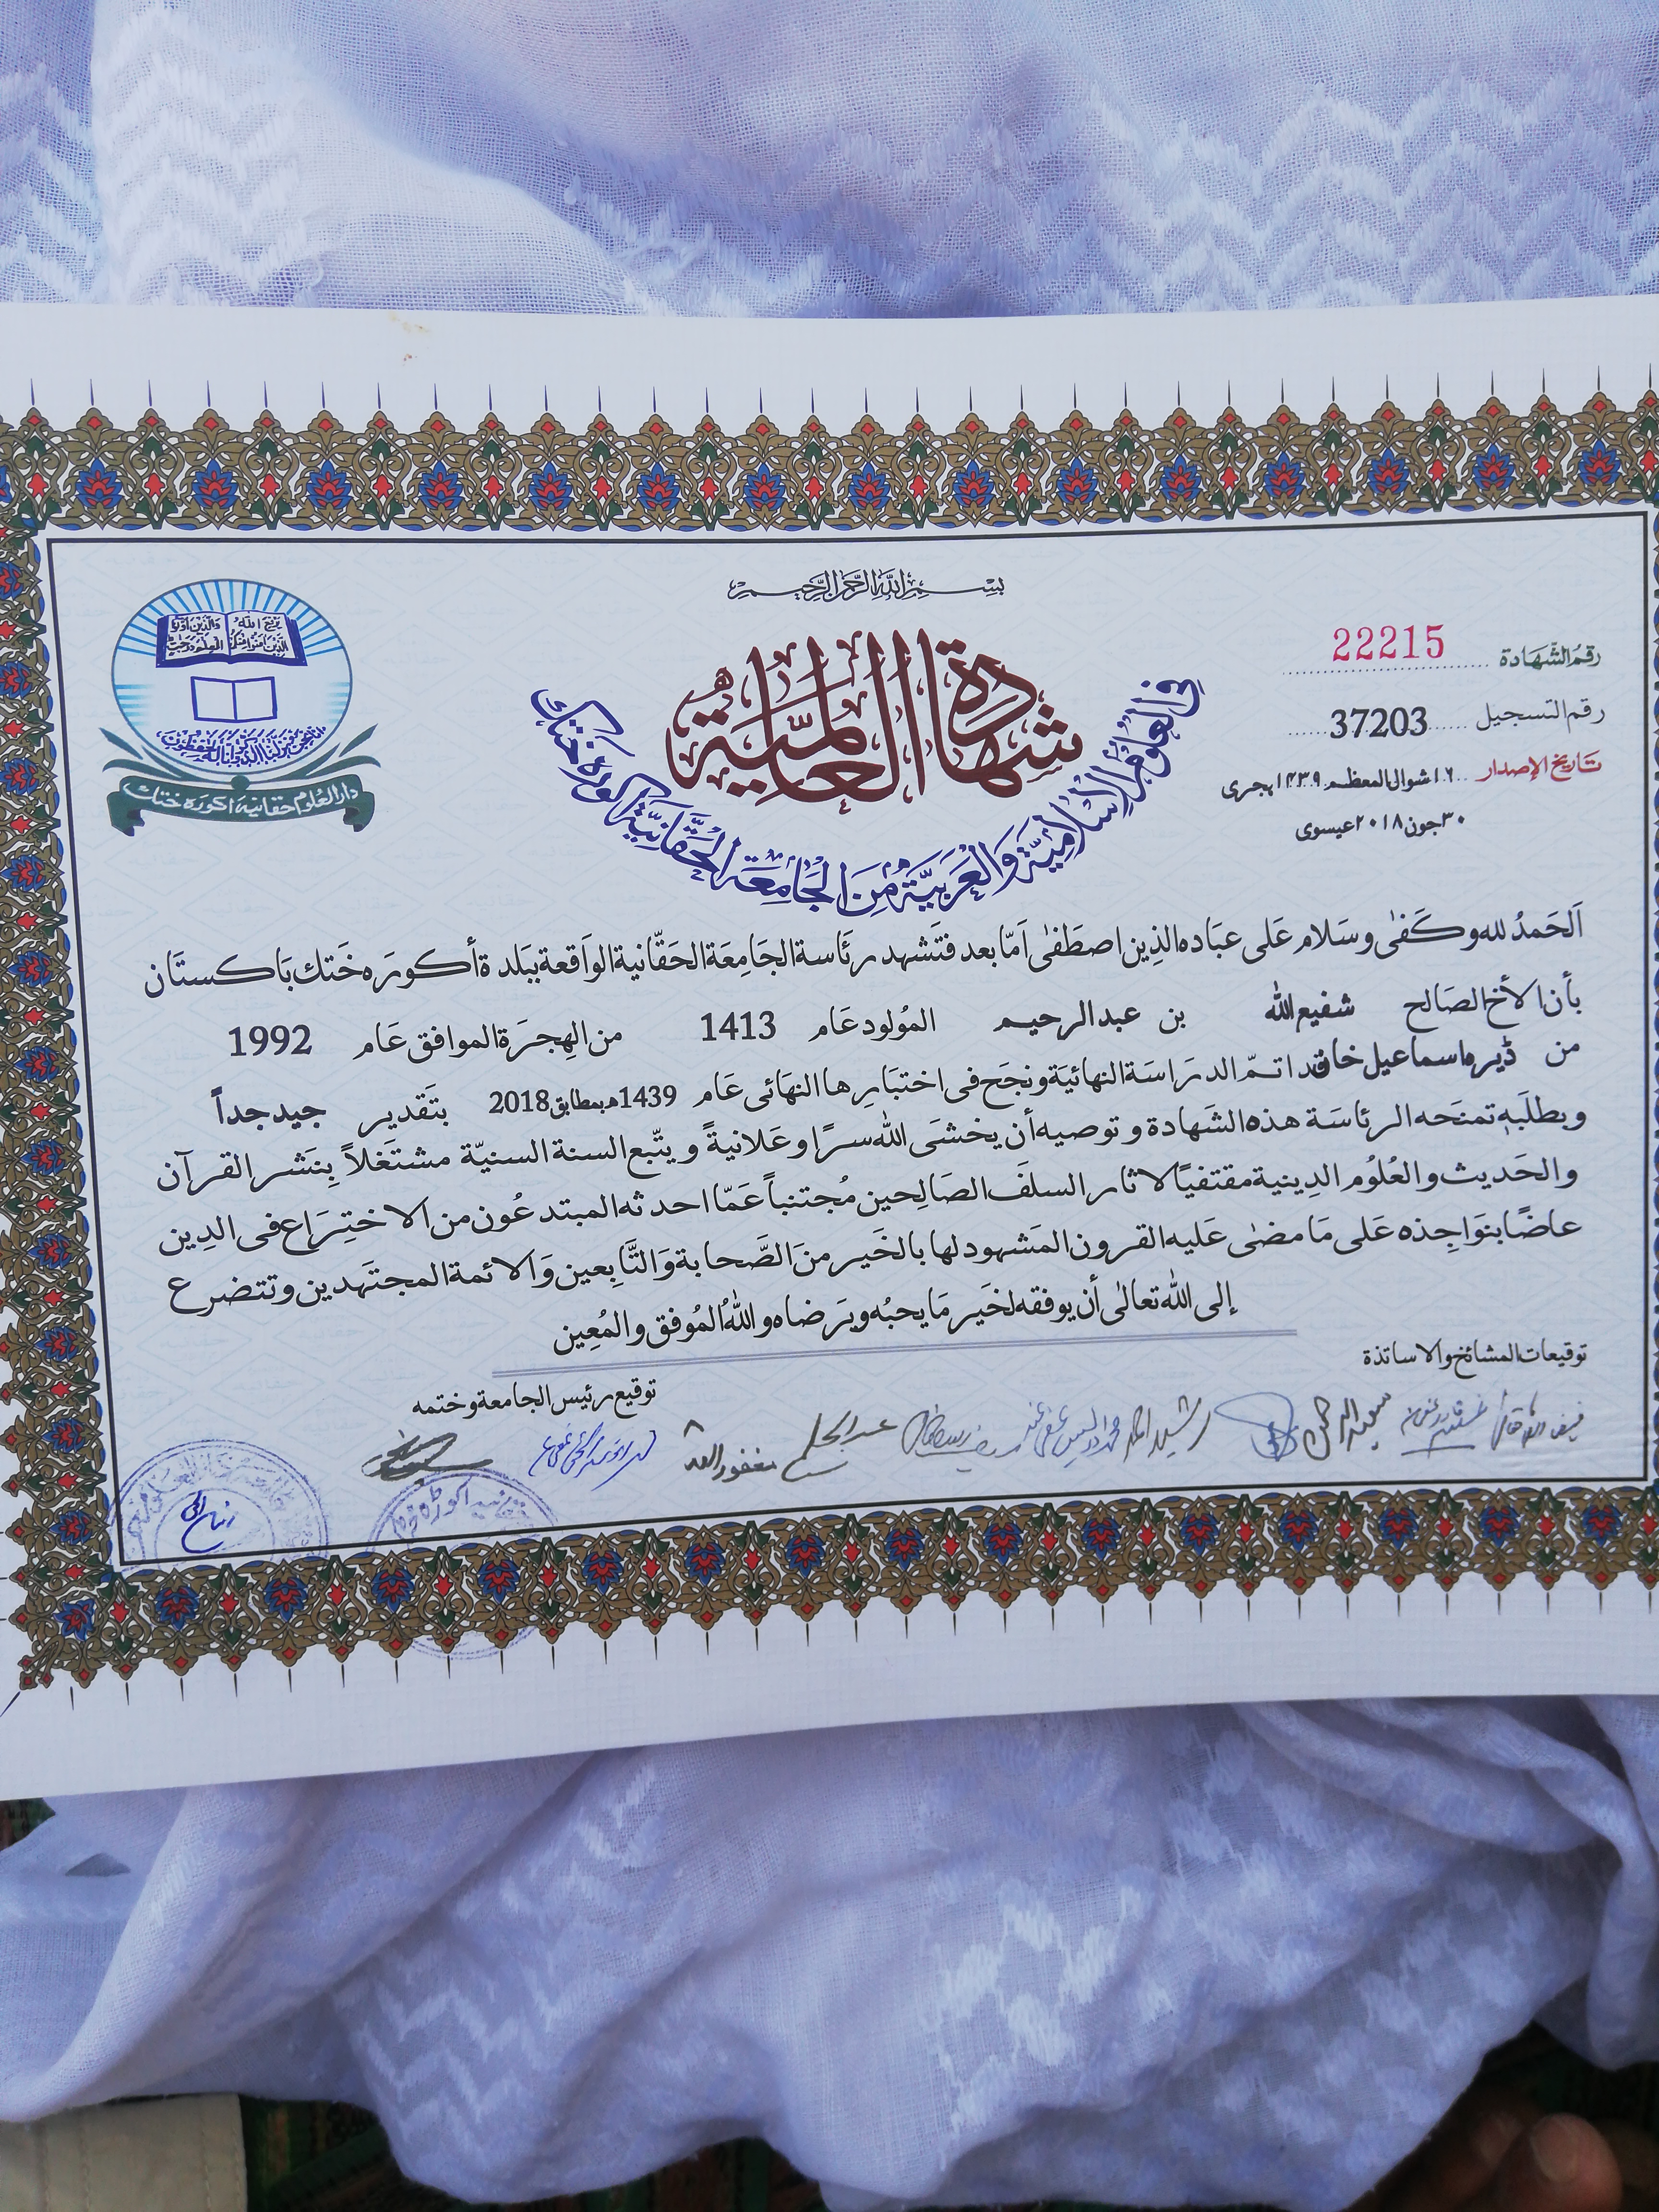 بسم الله الرحمن الرحيم
شهادة العالمية
في العلوم الإسلامية والعربية من الجامعة الحقانية اكوره ختك
رقم الشهادة 22215
رقم التسجيل 37203
تاريخ الإصدار ١٦ شوال المعظم ١٤٣٩ ہجری
٣٠ جون ٢٠١٨ عیسوی
يرفع الله الذين آمنوا منكم والذين اوتوا العلم درجٰت
انا نحن نزلنا الذكر وانا له لحٰفظون
دار العلوم حقانیہ اکوڑہ خٹک
اَلحَمدُ لله وكَفٰى وسَلام عَلى عبَاده الذِين اصطَفٰى اَمّا بعد فتَشهد رئَاسة الجَامِعَة الحَقّانية الوَاقعة ببَلدة أكورَه خَتك بَاكستَان
بأن الأخ الصَالح شفیع اللہ بن عبدالرحیم المؤلود عَام 1413 من الهِجرَة الموافق عَام 1992
من ڈیرہ اسماعیل خان قد اتمّ الدرَاسَة النهائيَة ونجَح في اختبَارِها النهَائى عَام 1439ھ بمطابق2018 بتَقدير جيد جداً
وبطلَبهٖ تمنَحه الرئاسَة هذه الشَهادة وتوصيه أن يخشَى الله سرًا وعَلانيةً ويتّبع السنة السنيّة مشتَغلاً بِنَشر القرآن
والحَديث والعُلوُم الدِينية مقتفيًا لاثار السلفَ الصَالِحين مُجتنباً عَمّا احدثه المبتدعُون من الاختِرَاع فى الدِين
عاضًا بنوَاجِذه عَلى مَا مضٰى عَليه القرون المَشهود لها بالخَير منَ الصَّحابة وَالتَّابِعين وَالائمة المجتَهدين وتتضرع
إلى الله تعالى أن يوفقه لخَير مَا يحبُه ويَرضاه والله المُوفق والمُعِين
توقيعات المشائخ والاساتذة
توقيع رئيس الجامعة وختمه
سعيد الرحمن
رشيد احمد
عبدالحليم
مغفور الله